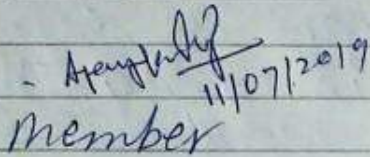 11/07/2019
member